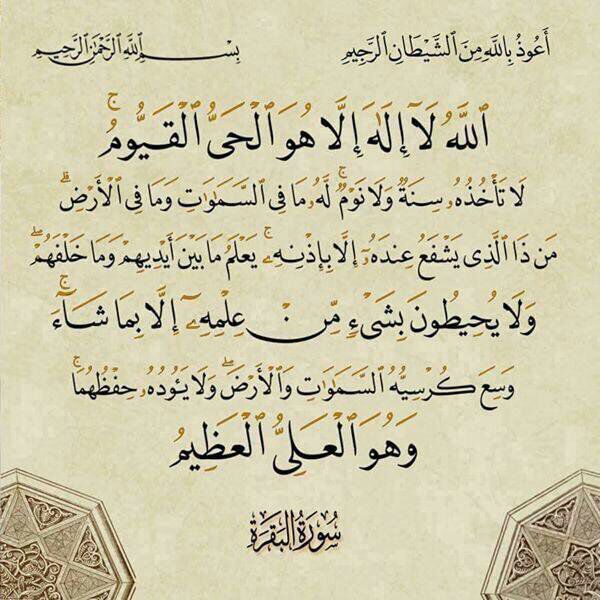 أَعُوذُ بِاللَّهِ مِنَ ٱلشَّيْطَانِ ٱلرَّجِيمِ
بِسْمِ ٱللَّهِ ٱلرَّحْمَٰنِ ٱلرَّحِيمِ
ٱللَّهُ لَآ إِلَٰهَ إِلَّا هُوَ ٱلْحَىُّ ٱلْقَيُّومُ ۚ
لَا تَأْخُذُهُۥ سِنَةٌ وَلَا نَوْمٌ ۚ لَّهُۥ مَا فِى ٱلسَّمَٰوَٰتِ وَمَا فِى ٱلْأَرْضِ ۗ
مَن ذَا ٱلَّذِى يَشْفَعُ عِندَهُۥٓ إِلَّا بِإِذْنِهِۦ ۚ يَعْلَمُ مَا بَيْنَ أَيْدِيهِمْ وَمَا خَلْفَهُمْ ۖ
وَلَا يُحِيطُونَ بِشَىْءٍ مِّنْ عِلْمِهِۦٓ إِلَّا بِمَا شَآءَ ۚ
وَسِعَ كُرْسِيُّهُ ٱلسَّمَٰوَٰتِ وَٱلْأَرْضَ ۖ وَلَا يَـُٔودُهُۥ حِفْظُهُمَا ۚ
وَهُوَ ٱلْعَلِىُّ ٱلْعَظِيمُ
سُورَةُ البَقَرَةِ